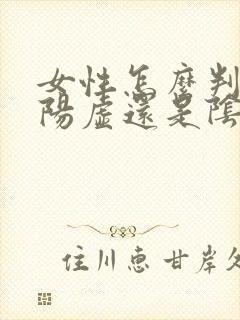 女性怎麼判
陽虛還是陰
住川惠甘岸久